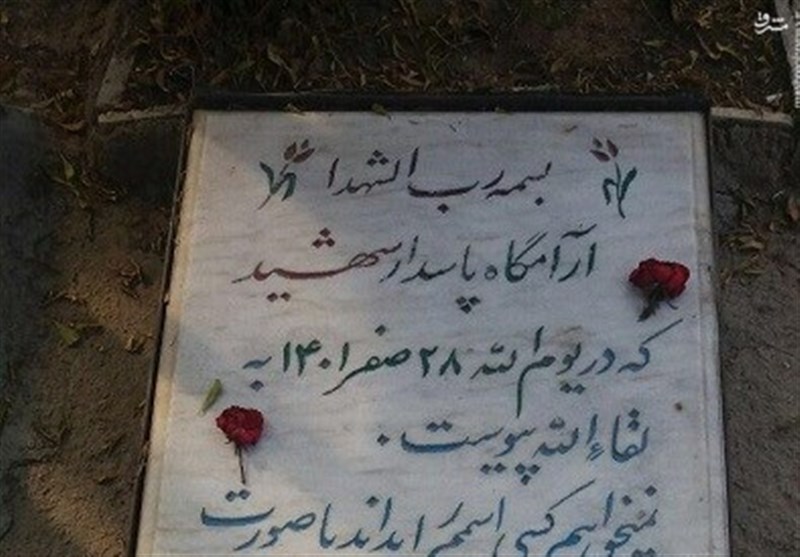 مشرق
بسمه رب الشهدا
آرامگاه پاسدار شهید
که در یوم الله ۲۸ صفر ۱۴۰۱ به
لقاء الله پیوست.
نمیخواهم کسی اسمم را بداند با صورت